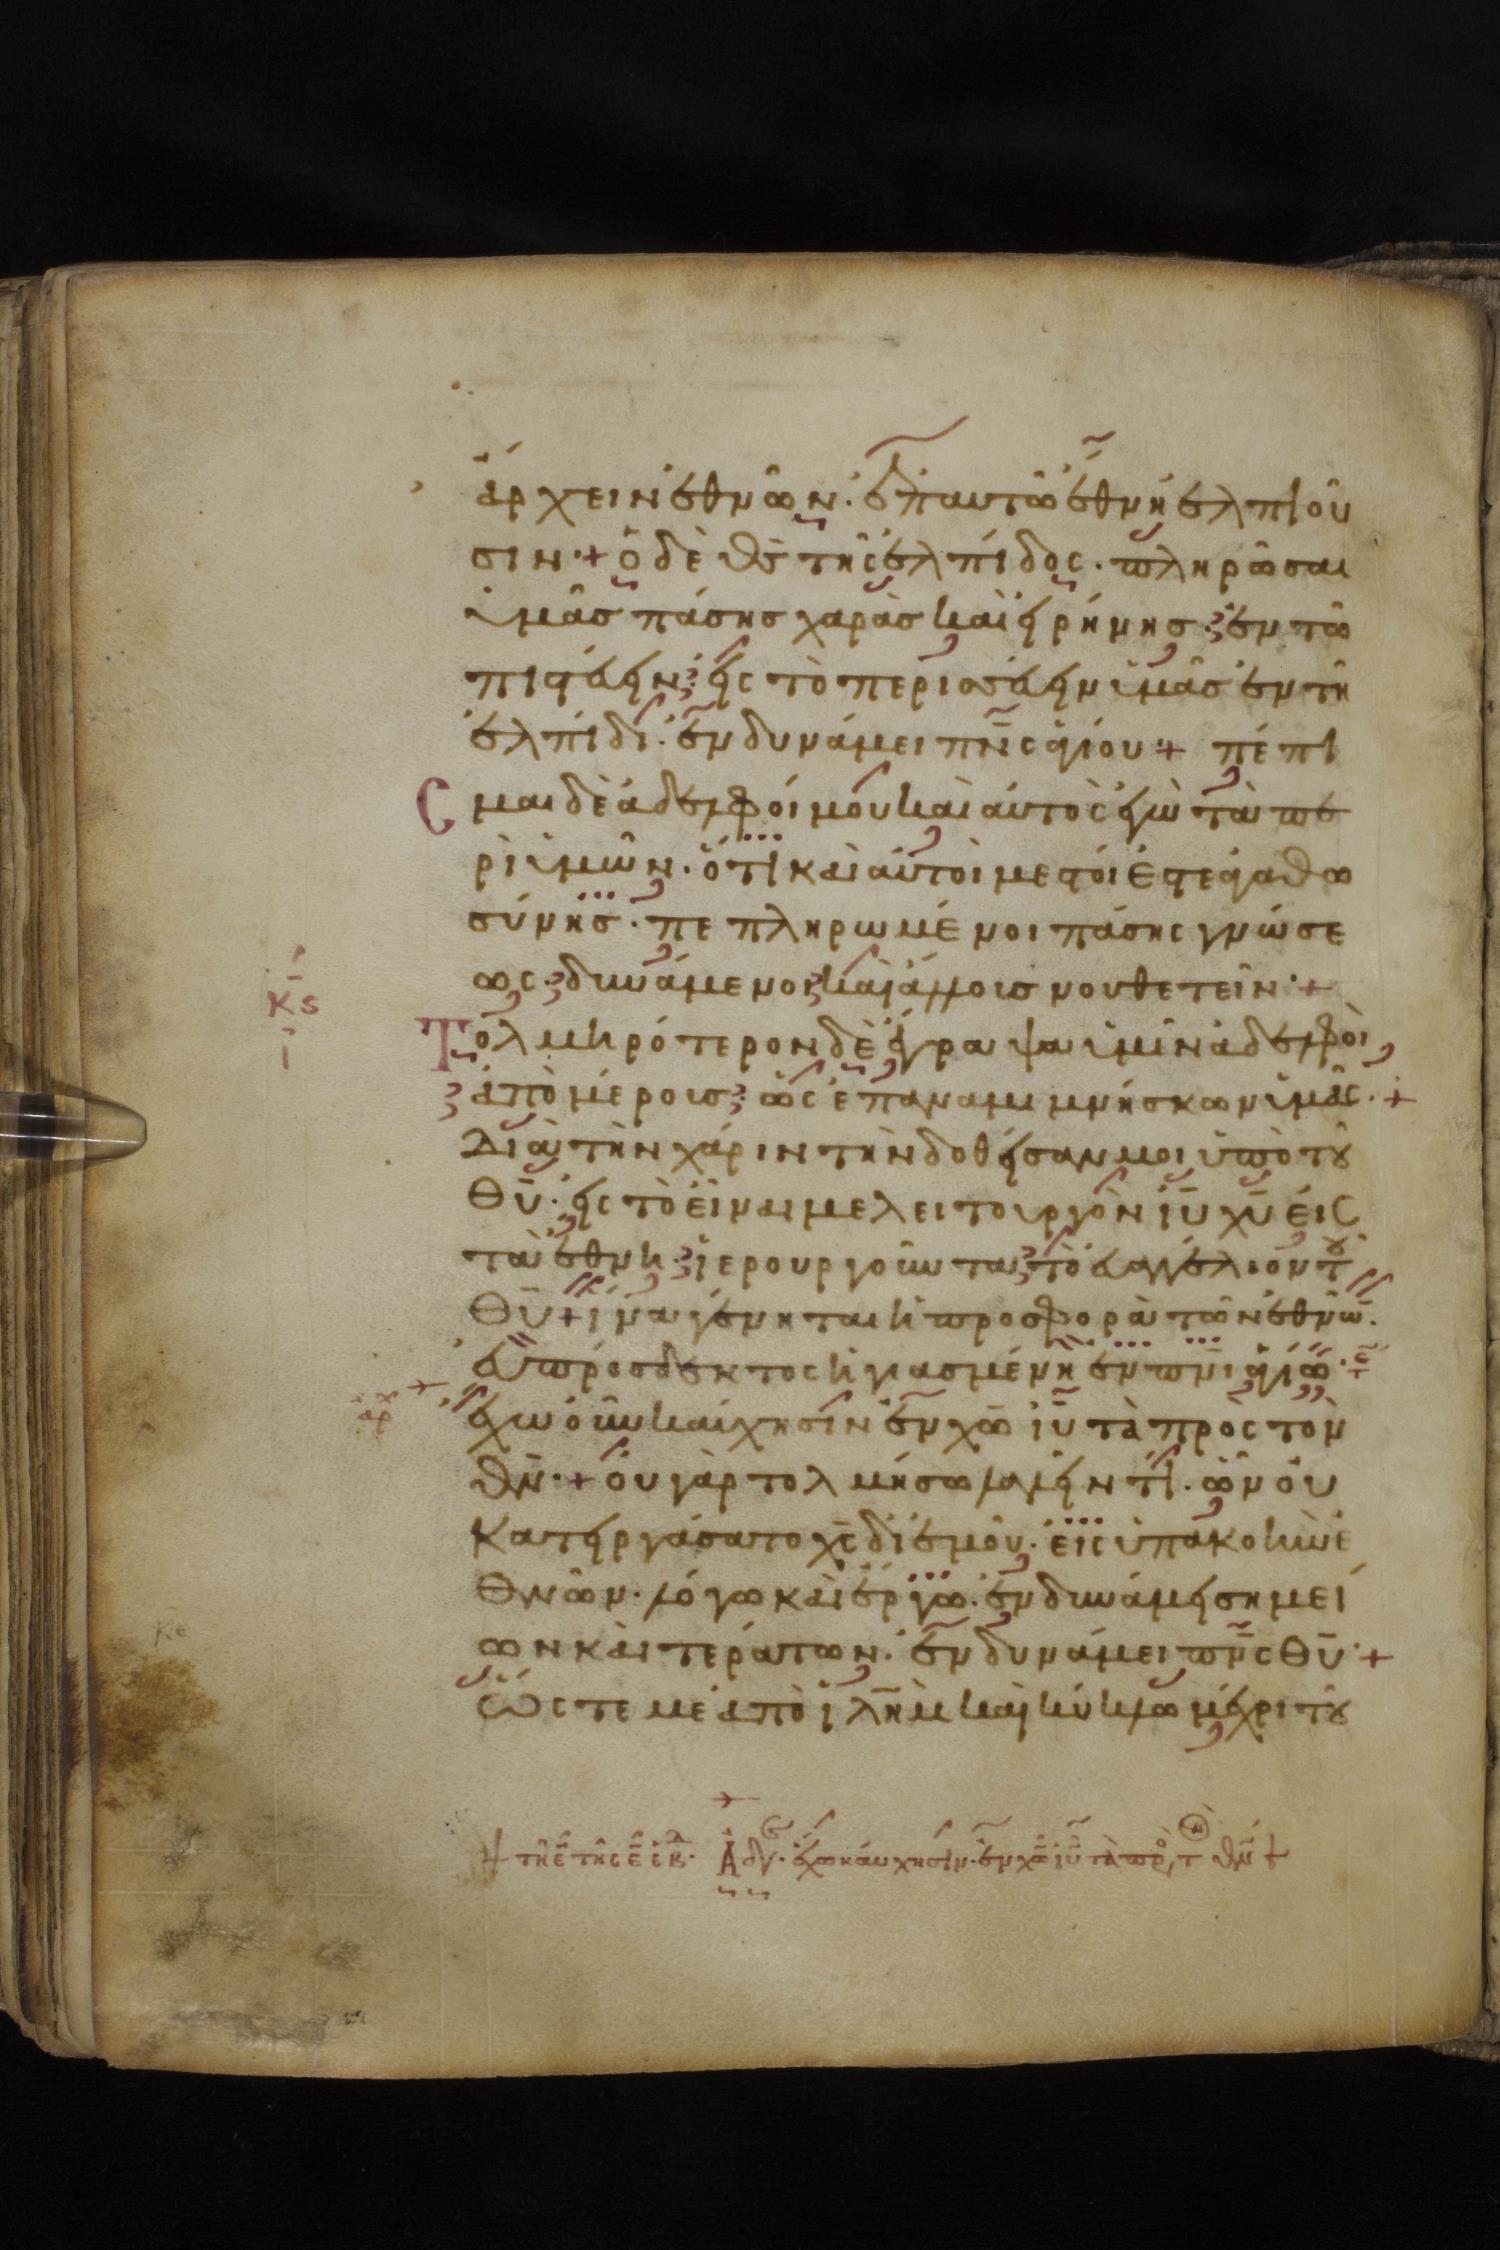 ἄρχειν ἐθνῶν· ἐπ' αυτῶ ἔθνη ἐλπιοῦ
σιν·+ ὁ δὲ θ̅ς̅ τῆς ἐλπίδος· πληρῶσαι
ὑμᾶσ πάσησ χαρᾶσ καὶ εἰρήνησ· ἐν τῶ
πιστεύειν· εἰς τὸ περισσεύειν ὑμᾶσ ἐν τῆ
ἐλπίδι· ἐν δυνάμει π̅ν̅ς̅ ἁγίου·+ πέπι
μαι δὲ ἀδελφοί μου καὶ αὐτὸς ἐγὼ πε
ρὶ ὑμῶν· ὅτι καὶ αὐτοὶ μεστοί ἐστε ἀγαθω
σύνησ· πεπληρωμένοι πάσης γνώσε
ως· δυνάμενοι καὶ ἄλλουσ νουθετεῖν·+
Τολμηρότερον δὲ ἔγραψα ὑμῖν ἀδελφοὶ
ἀπὸ μέρουσ· ὡς ἐπαναμιμνήσκων ὑμᾶς·+
Διὰ τὴν χάριν τὴν δοθεῖσαν μοι ὑπὸ τοῦ
Θ̅υ̅· εἰς τὸ εἶναι με λειτουργὸν ι̅υ̅ χ̅υ̅ εἰς
τὰ ἔθνη· ἱερουργοῦντα τὸ εὐαγγέλιον τοῦ
Θ̅υ̅+ ἵνα γένηται ἡ προσφορὰ τῶν ἐθνῶν·
εὐπρόσδεκτος ἡγιασμένη ἐν π̅ν̅ι̅ ἁγίω·+
ἔχω οὖν καύχησιν ἐν χ̅ω̅ ι̅υ̅ τὰ πρὸς τὸν
θ̅ν̅·+ οὐ γὰρ τολμήσω λαλεῖν τί· ὧν οὐ
κατειργάσατο χ̅ς̅ δι' ἐμοῦ· εἰς ὑπακοὴν ἐ
θνῶν· λόγω καὶ ἔργω· ἐν δυνάμει σημεί
ων καὶ τεράτων· ἐν δυνάμει π̅ν̅ς̅ Θ̅υ̅·+
Ὥστε με ἀπὸ ἱ̅λ̅η̅μ̅ καὶ κύκλω μέχρι τοῦ
κ̅ς̅
ι̅
ἀρχ
+ τῆ ε̅ τῆς ε̅ ἑβ· Ἀδ̅γ̅· ἔχω καύχησιν· ἐν χ̅ω̅ ι̅υ̅ τὰ πρὸς τὸν θ̅ν̅ +